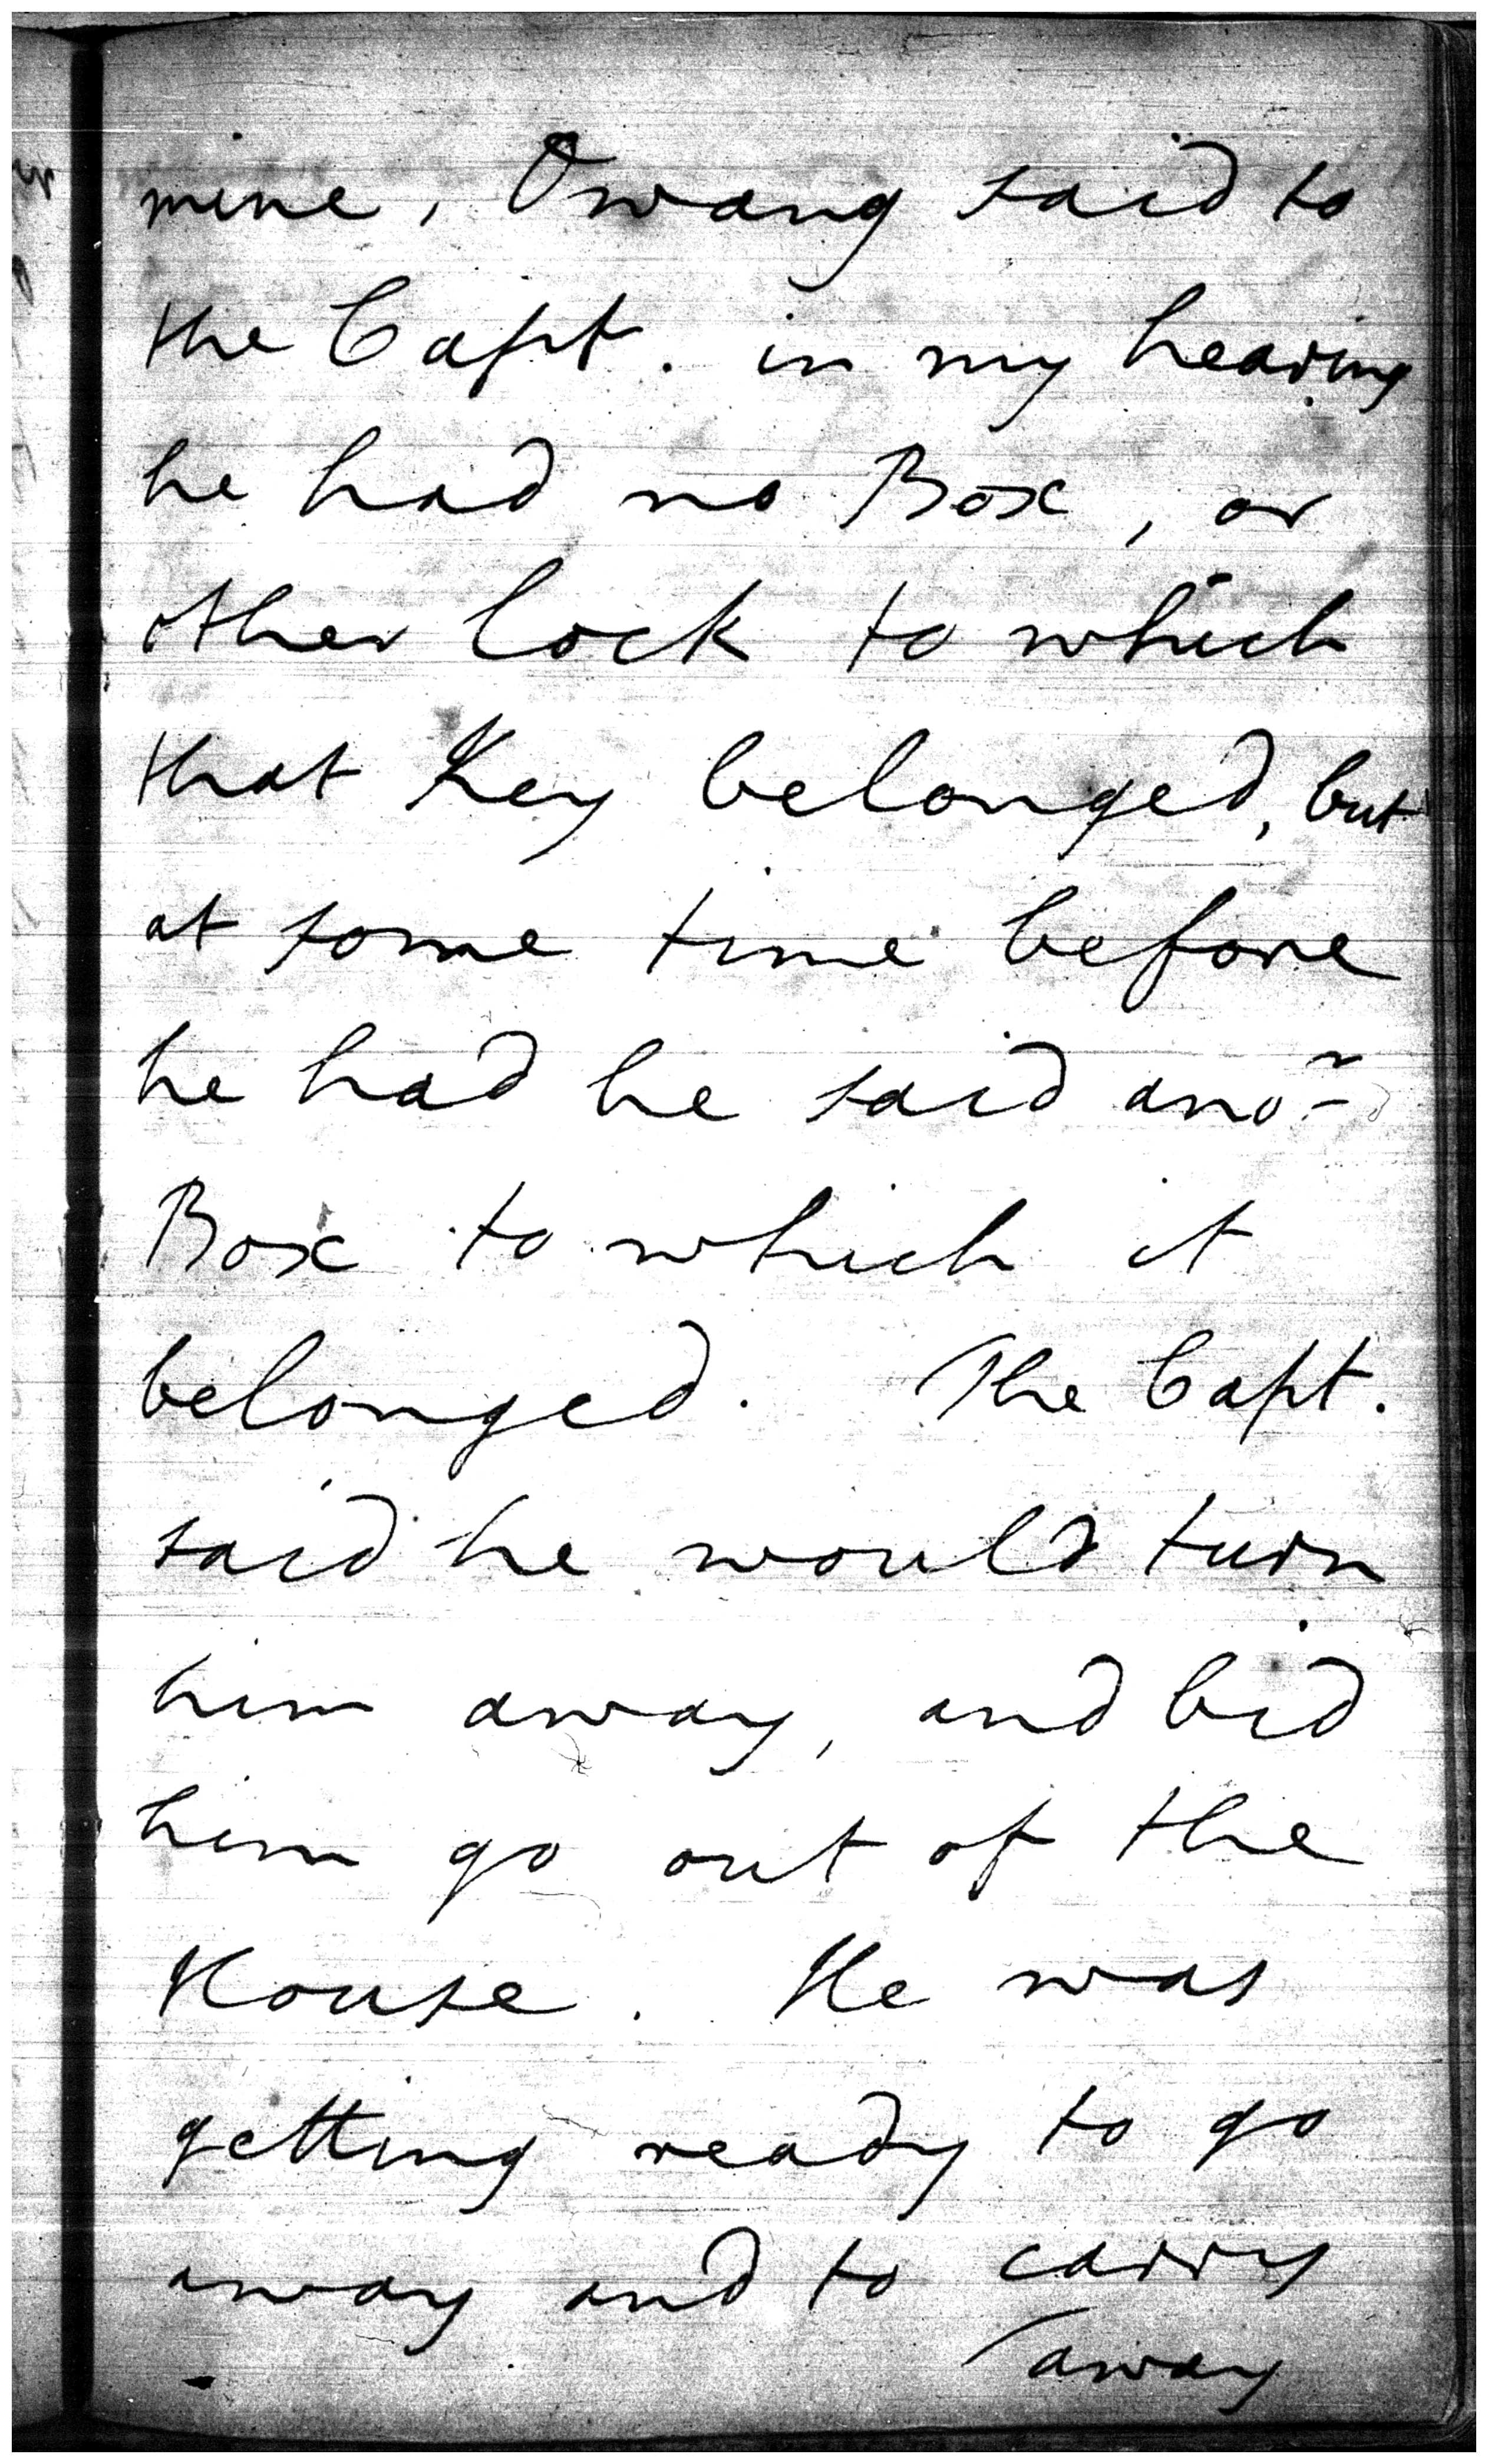 mine, Owang said to
the Capt. in my hearing
he had no Box, or
other lock to which
that Key belonged, but
at some time before
he had he said ano=r
Box to which it
belonged. The Capt.
said he would turn
him away, and bid
him go out of the
House. He was
getting ready to go
away and to carry
away